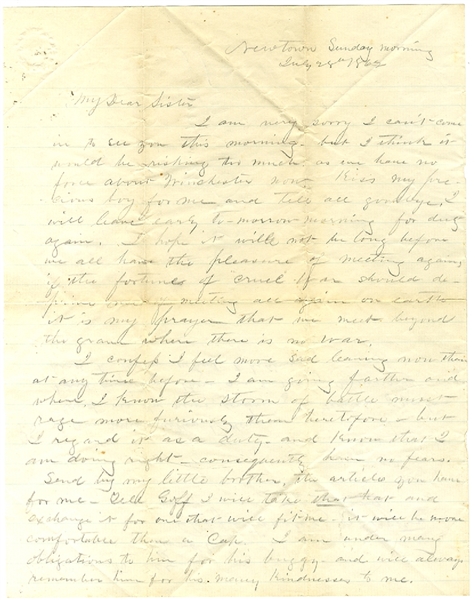 Newtown Sunday morning
July 28th 1862
My Dear Sister
I am very sorry I can't come
in to see you this morning - but I think it
would be risking too much as we have no
force about Winchester now. Kiss my pre-
cious boy for me and tell all goodbye, I
will leave early to-morrow morning for duty
again. I hope it will not be long before
we all have the pleasure of meeting again,
if the fortunes of cruel War should de-
prive me of meeting all again on earth
it is my prayer that we meet beyond
the grave where there is no War.
I confess I feel more sad leaving now than
at any time before - I am going farther and
where I know the storm of battle must
rage more furiously than heretofore - but
I regard it as a duty - and know that I
am doing right - consequently have no fears.
Send by my little brother, the articles you have
for me - Goff I will take that hat and
exchange it for one that will fit me - it will be more
comfortable than a Cap. I am under many
obligations to him for his buggy - and will always
remember him for his many kindnesses to me.